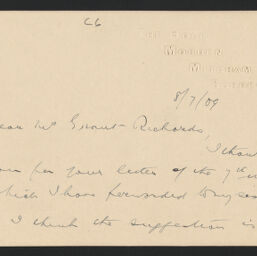 C6
8/7/09
ear Mr Grant Richards,
I than
for your letter of the 7th
which I have forwarded to my
I think the suggestion is